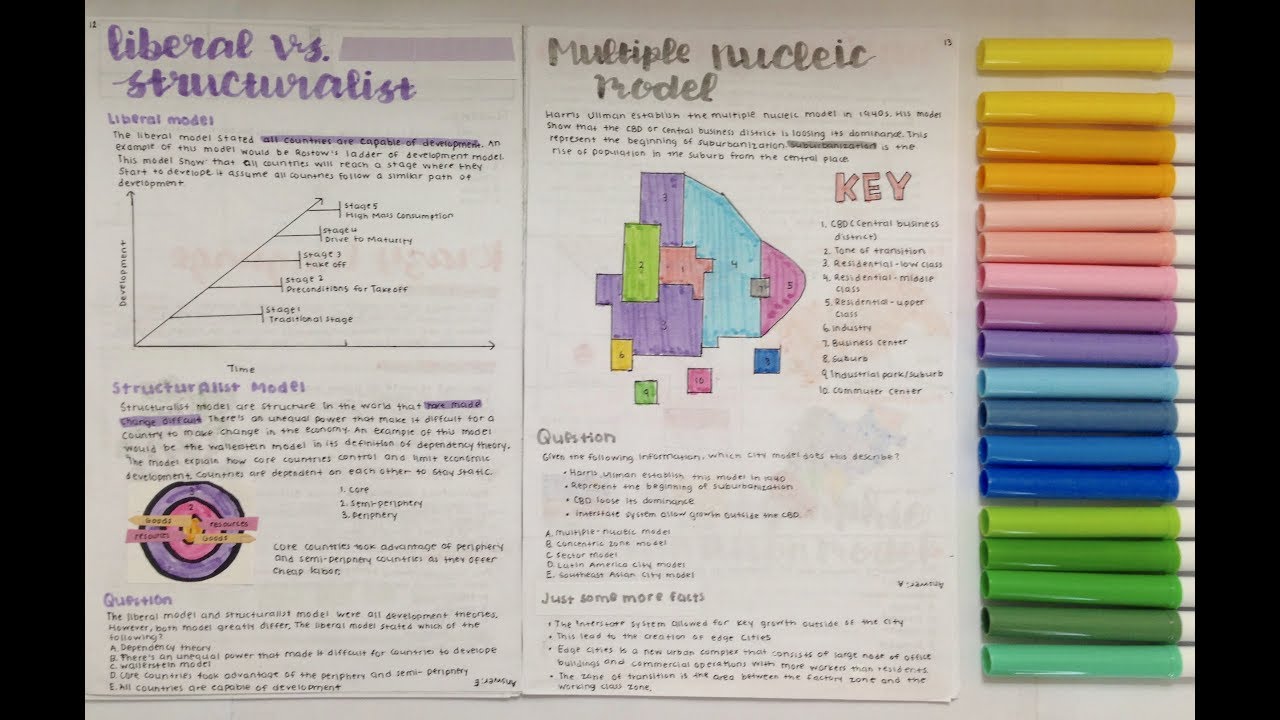 12
liberal vs.
structuralist
Liberal model
The liberal model stated all countries are capable of development. An
example of this model would be Rostow's ladder of development model.
This model show that all countries will reach a stage where they
start to develope. it assume all countries follow a similar path of
development.
Development
Stage 5
High Mass Consumption
Stage 4
Drive to Maturity
Stage 3
take off
Stage 2
Preconditions for Takeoff
Stage 1
Traditional Stage
Time
Structuralist Model
Structuralist model are structure in the world that have made
change difficult. There's an unequal power that make it difficult for a
country to make change in the economy. An example of this model
would be the wallerstein model in its definition of dependency theory.
The model explain how core countries control and limit economic
development. Countries are dependent on each other to stay static.
3
2
1
Goods
resources
resources
Goods
1. Core
2. Semi-periphery
3. Periphery
Core countries took advantage of periphery
and semi-periphery countries as they offer
cheap labor.
Question
The liberal model and structuralist model were all development theories.
However, both model greatly differ. The liberal model stated which of the
following?
A. Dependency theory
B. There's an unequal power that made it difficult for countries to develope
C. wallerstein model
D. Core countries took advantage of the periphery and semi-periphery
E. All countries are capable of development
Answer: E
13
Multiple nucleic
Model
Harris Ullman establish the multiple nucleic model in 1940s. His model
show that the CBD or central business district is loosing its dominance. This
represent the beginning of suburbanization. suburbanization is the
rise of population in the suburb from the central place
3
2
1
4
7
5
3
6
8
9
10
KEY
1. CBD (Central business
district)
2. Zone of transition
3. Residential-low class
4. Residential-middle
class
5. Residential-upper
class
6. Industry
7. Business Center
8. Suburb
9. Industrial park/suburb
10. Commuter Center
Question
Given the following information, which city model does this describe?
• Harris Ullman establish this model in 1940
• Represent the beginning of suburbanization
• CBD loose its dominance
• Interstate system allow growth outside the CBD.
A. Multiple-nucleic model
B. Concentric zone model
C. Sector model
D. Latin America city model
E. Southeast Asian city model
Answer: A
Just some more facts
• The interstate system allowed for key growth outside of the city
• This lead to the creation of edge cities
• Edge cities is a new urban complex that consists of large node of office
buildings and commercial operations with more workers than residents.
• The zone of transition is the area between the factory zone and the
working class zone.